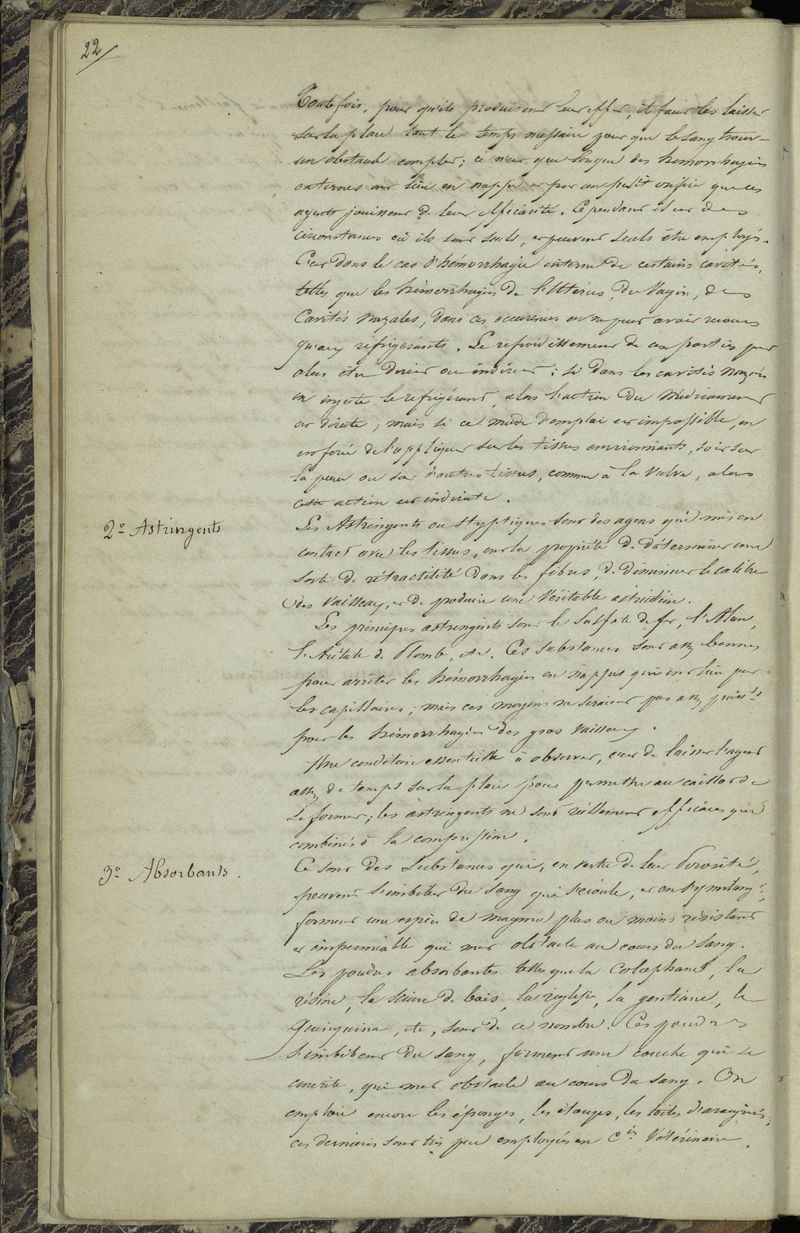 22
Toutefois, pour qu'ils produisent leur effet, il faut les laisser
sur la place tout le temps nessaire pour que le sang trouve
un obstacle complet; ce n'est que lorsque des hémorrhagies
externes ont lieu en nappe et par un petit orifice que ces
agents jouissent de leur efficacité. Cependant il est des
circonstances où ils sont seuls, et peuvent seuls être employés.
C'est dans le cas d'hémorrhagie interne de certaines cavités,
telles que les hémorrhagies de l'Utérus, du Vagin, des
Cavités nazales, dans ces occurences on ne peut avoir recours
qu'aux réfrigérants. Le refroidissement de ces parties peut
alors être direct ou indirect; si dans les cavités nazales
on injecte le réfrigérant, alors l'action du médicament
est directe, mais si ce mode d'emploi est impossible, on
est forcé de l'appliquer sur les tissus environnants, soit sur
la peau ou sur d'autres tissus, comme à la Vulve, alors
cette action est indirecte.
2º Astringents
Les Astringents ou styptiques sont des agens qui mis en
contact avec les tissus, ont la propriété de déterminer une
sorte de rétractilité dans les fibres, de diminuer le calibre
des Vaisseaux, et de produire une Véritable astriction.
Les principes astringents sont le Sulfate de fer, l'Alun,
l'Acétate de Plomb, etc. Ces substances sont assez bonnes
pour arrêter les hémorrhagies en nappes qui ont lieu par
les capillaires; mais ces moyens ne seraient pas assez puissts
pour les hémorrhagies des gros Vaisseaux.
Une condition essentielle à observer, c'est de laisser l'agent
assez de temps sur la plaie pour permettre au caillot de
se former; les astringents ne sont réellement efficaces que
combinés à la compression.
3º Absorbants.
Ce sont des substances qui, en vertu de leur Porosité,
peuvent s'imbiber du sang qui s'écoule, et en s'y mélangt,
forment une espèce de magma plus ou moins résistant
et imperméable qui met obstacle au cours du sang.
Les poudres absorbantes telles que la Colophane, la
résine, la sciure de bois, la réglisse, la gentiane, le
Quinquina, etc, sont de ce nombre. Ces poudres
s'imbibent du sang, forment une couche qui se
concrète, qui met obstacle au cours du sang. On
emploie encore les éponges, les étoupes, les toiles d'araignées,
ces dernières sont très peu employées en Cie Vétérinaire.